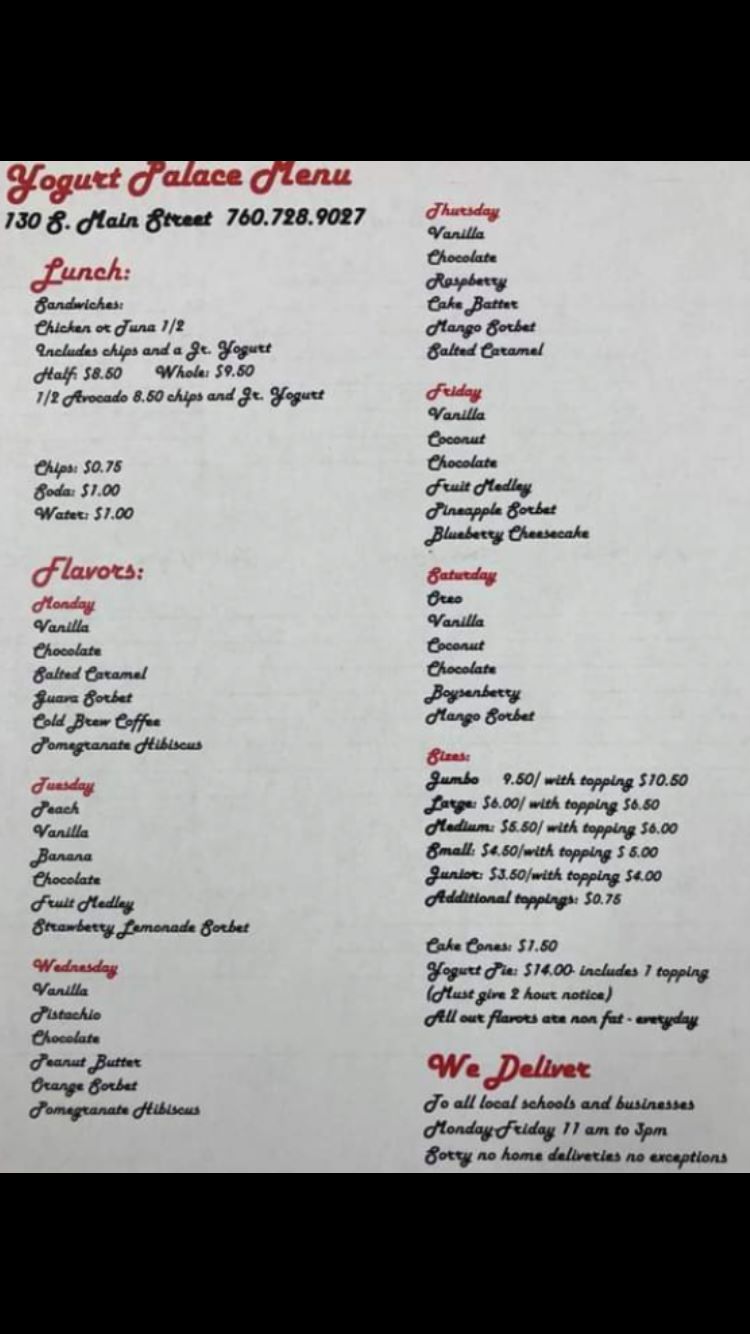 Yogurt Palace Menu
130 S. Main Street 760.728.9027
Lunch:
Sandwiches:
Chicken or Tuna 1/2
Includes chips and a Jr. Yogurt
Half: $8.50 Whole: $9.50
1/2 Avocado 8.50 chips and Jr. Yogurt
Chips: $0.75
Soda: $1.00
Water: $1.00
Flavors:
Monday
Vanilla
Chocolate
Salted Caramel
Guava Sorbet
Cold Brew Coffee
Pomegranate Hibiscus
Tuesday
Peach
Vanilla
Banana
Chocolate
Fruit Medley
Strawberry Lemonade Sorbet
Wednesday
Vanilla
Pistachio
Chocolate
Peanut Butter
Orange Sorbet
Pomegranate Hibiscus
Thursday
Vanilla
Chocolate
Raspberry
Cake Batter
Mango Sorbet
Salted Caramel
Friday
Vanilla
Coconut
Chocolate
Fruit Medley
Pineapple Sorbet
Blueberry Cheesecake
Saturday
Oreo
Vanilla
Coconut
Chocolate
Boysenberry
Mango Sorbet
Sizes:
Jumbo 9.50/ with topping $10.50
Large: $6.00/ with topping $6.50
Medium: $5.50/ with topping $6.00
Small: $4.50/with topping $ 5.00
Junior: $3.50/with topping $4.00
Additional toppings: $0.75
Cake Cones: $1.50
Yogurt Pie: $14.00- includes 1 topping
(Must give 2 hour notice)
All our flavors are non fat - everyday
We Deliver
To all local schools and businesses
Monday-Friday 11 am to 3pm
Sorry no home deliveries no exceptions